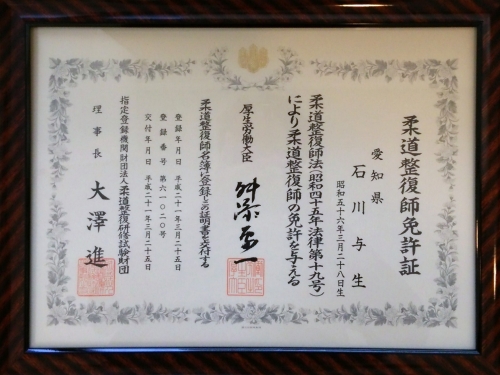 柔道整復師免許証
愛知県
石川与生
昭和五十六年三月二十八日生
柔道整復師法(昭和四十五年法律第十九号)
により柔道整復師の免許を与える
厚生労働大臣
舛添要一
柔道整復師名簿に登録しこの証明書を交付する
登録年月日 平成二十一年三月二十五日
登録番号 第六一〇二〇号
交付年月日 平成二十一年三月二十五日
指定登録機関財団法人柔道整復研修試験財団
理事長 大澤進